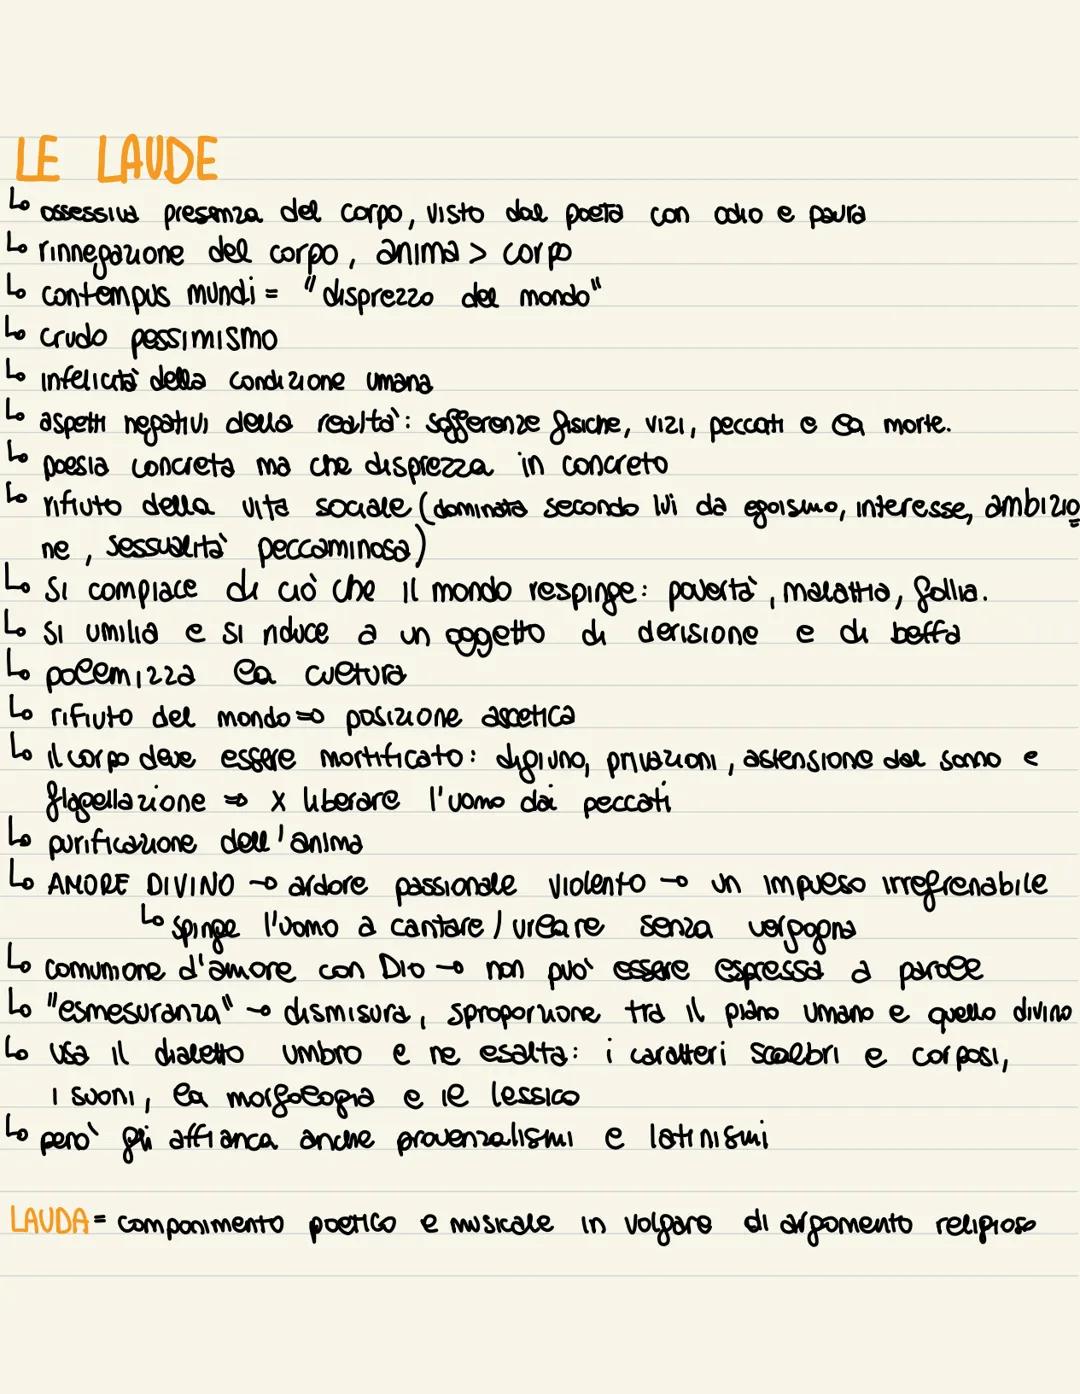 LE LAUDE
↳ ossessiva presenza del corpo, visto dal poeta con odio e paura
↳ rinnegazione del corpo, anima > corpo
↳ contempus mundi = "disprezzo del mondo"
↳ crudo pessimismo
↳ infelicità della condizione umana
↳ aspetti negativi della realtà: sofferenze fisiche, vizi, peccati e la morte.
↳ poesia concreta ma che disprezza in concreto
↳ rifiuto della vita sociale (dominata secondo lui da egoismo, interesse, ambizio
ne, sessualità peccaminosa)
↳ si compiace di ciò che il mondo respinge: povertà, malattia, follia.
↳ si umilia e si riduce a un oggetto di derisione e di beffa
↳ polemizza la cultura
↳ rifiuto del mondo ⇒ posizione ascetica
↳ il corpo deve essere mortificato: digiuno, privazioni, astensione dal sonno e
flagellazione ⇒ x liberare l'uomo dai peccati
↳ purificazione dell'anima
↳ AMORE DIVINO → ardore passionale violento → un impulso irrefrenabile
↳ spinge l'uomo a cantare / urlare senza vergogna
↳ comunione d'amore con Dio → non può essere espressa a parole
↳ "esmesuranza" → dismisura, sproporzione tra il piano umano e quello divino
↳ usa il dialetto umbro e ne esalta: i caratteri scalbri e corposi,
i suoni, la morfologia e il lessico
↳ però gli affianca anche provenzalismi e latinismi
LAUDA = componimento poetico e musicale in volgare di argomento religioso